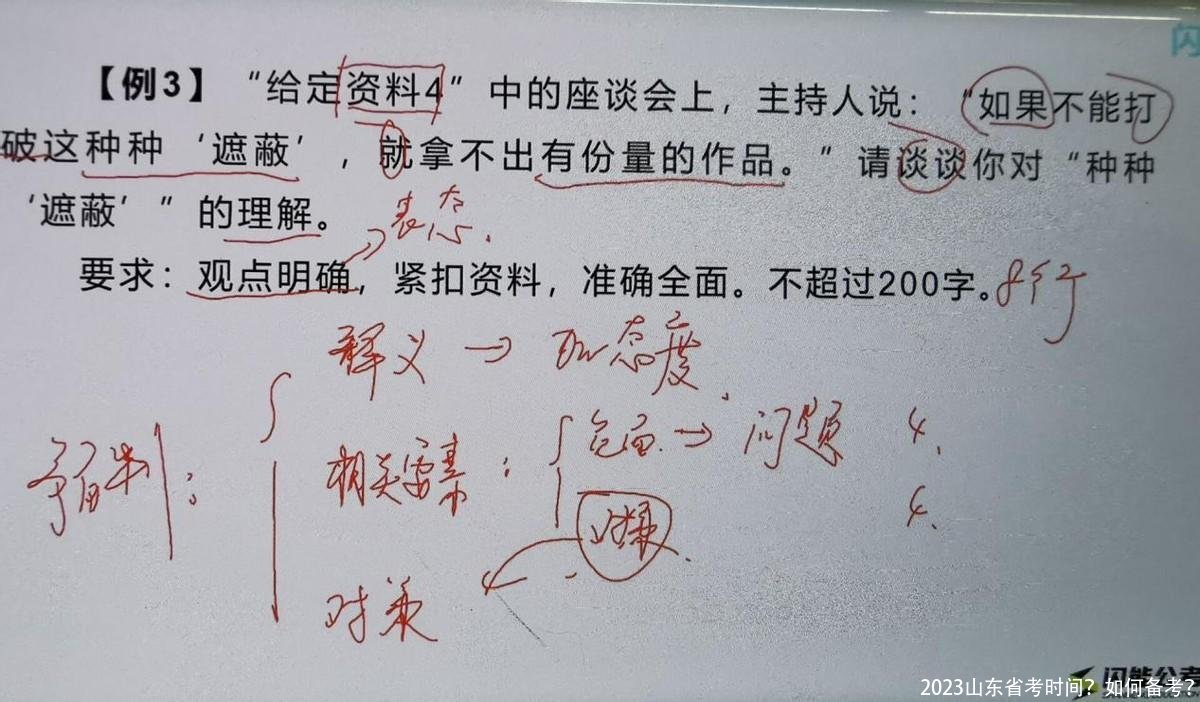 闪
【例3】“给定资料4”中的座谈会上，主持人说：“如果不能打
破这种种‘遮蔽’，就拿不出有份量的作品。”请谈谈你对“种种
‘遮蔽’”的理解。
表态.
要求：观点明确，紧扣资料，准确全面。不超过200字。8行
释义 → 和态度
预判： 相关要素： 负面 → 问题 4.
对策. 4.
对策
闪能公考
2023山东省考时间？如何备考？